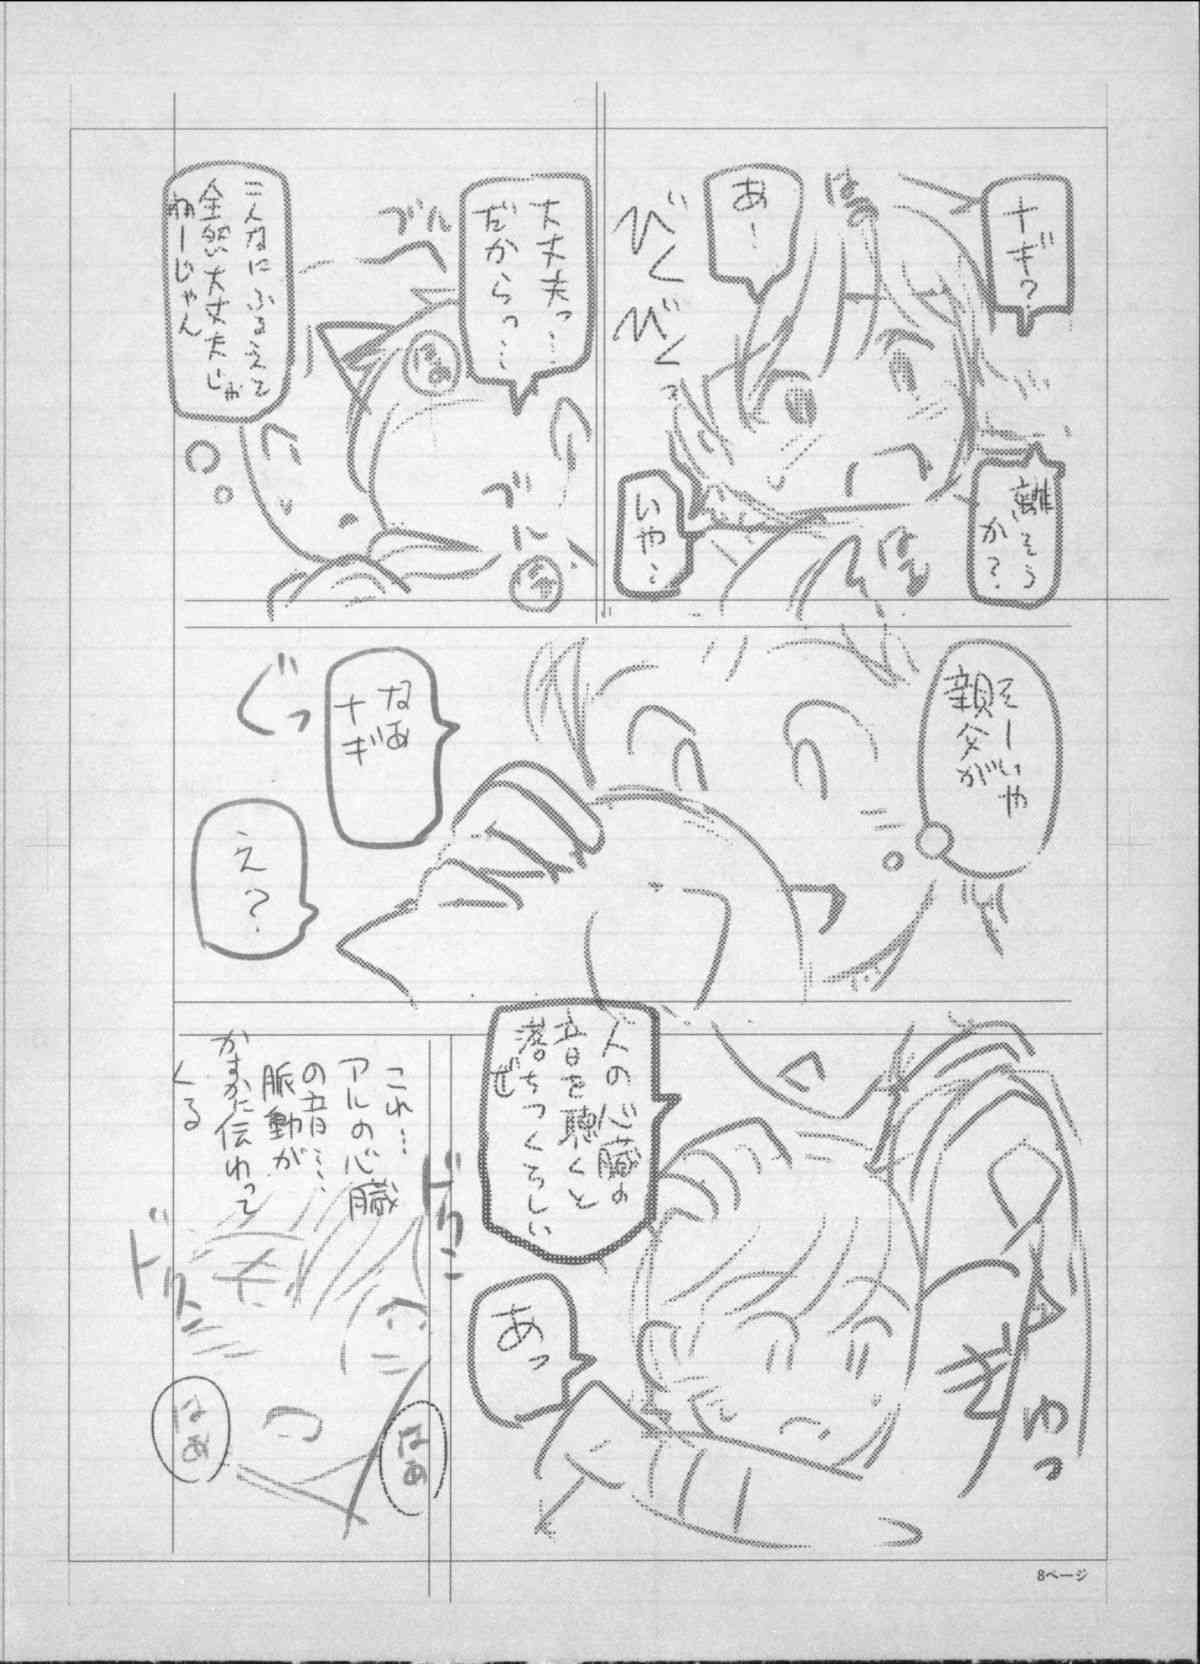 ナギ?
はぁ
離そう
か?
あ…
びくびくっ
いや…
はぁ
大丈夫っ…
だからっ…
ブル
はぁ
こんなにふるえて
全然大丈夫じゃ
ねーじゃん
ブル
はぁ
そーいや
親父が
なぁ
ナギ
ぐっ
え?
人の心臓の
音を聴くと
落ちつくらしい
ぜ
ぎゅっ
あっ
これ…
アルの心臓
の音…
脈動が
かすかに伝わって
くる
ドクン
ドクン
はぁ
はぁ
8ページ